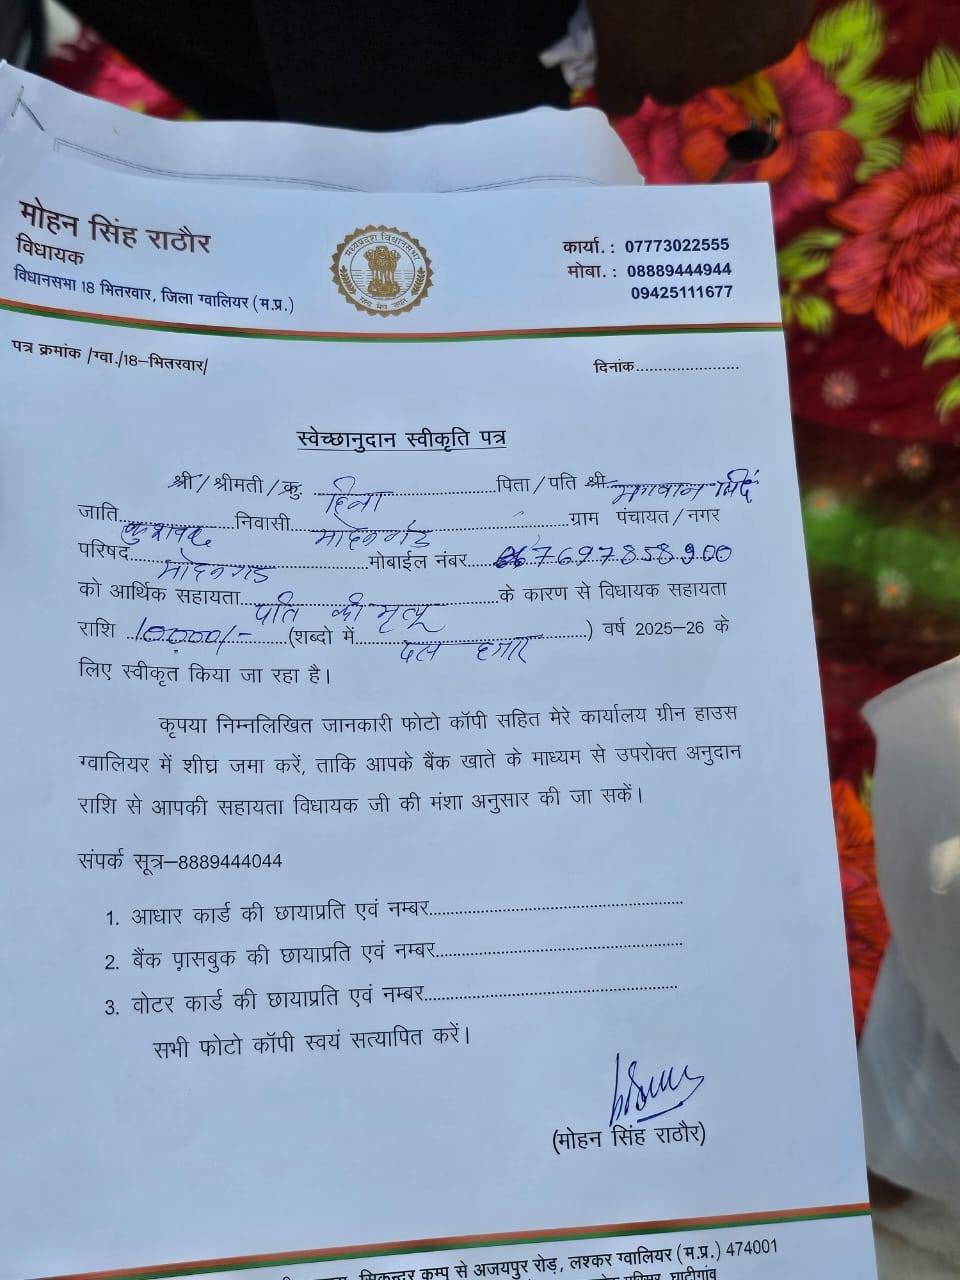 मोहन सिंह राठौर
विधायक
विधानसभा 18 भितरवार, जिला ग्वालियर (म.प्र.)
मध्यप्रदेश विधानसभा
कार्या. : 07773022555
मोबा. : 08889444944
09425111677
पत्र क्रमांक /ग्वा./18–भितरवार/
दिनांक........................
स्वेच्छानुदान स्वीकृति पत्र
श्री/श्रीमती/क्रु. हिना पिता/पति श्री भगवान सिंह
जाति कुशवाह निवासी मोहनगढ ग्राम पंचायत/नगर
परिषद मोहनगढ मोबाईल नंबर 7697858900
को आर्थिक सहायता पति की मृत्यू के कारण से विधायक सहायता
राशि 10,000/- (शब्दो में दस हजार) वर्ष 2025–26 के
लिए स्वीकृत किया जा रहा है।
कृपया निम्नलिखित जानकारी फोटो कॉपी सहित मेरे कार्यालय ग्रीन हाउस
ग्वालियर में शीघ्र जमा करें, ताकि आपके बैंक खाते के माध्यम से उपरोक्त अनुदान
राशि से आपकी सहायता विधायक जी की मंशा अनुसार की जा सकें।
संपर्क सूत्र–8889444044
1. आधार कार्ड की छायाप्रति एवं नम्बर........................
2. बैंक पासबुक की छायाप्रति एवं नम्बर........................
3. वोटर कार्ड की छायाप्रति एवं नम्बर........................
सभी फोटो कॉपी स्वयं सत्यापित करें।
(मोहन सिंह राठौर)
सिकन्दर कम्पू से अजयपुर रोड़, लश्कर ग्वालियर (म.प्र.) 474001
घाटीगांव